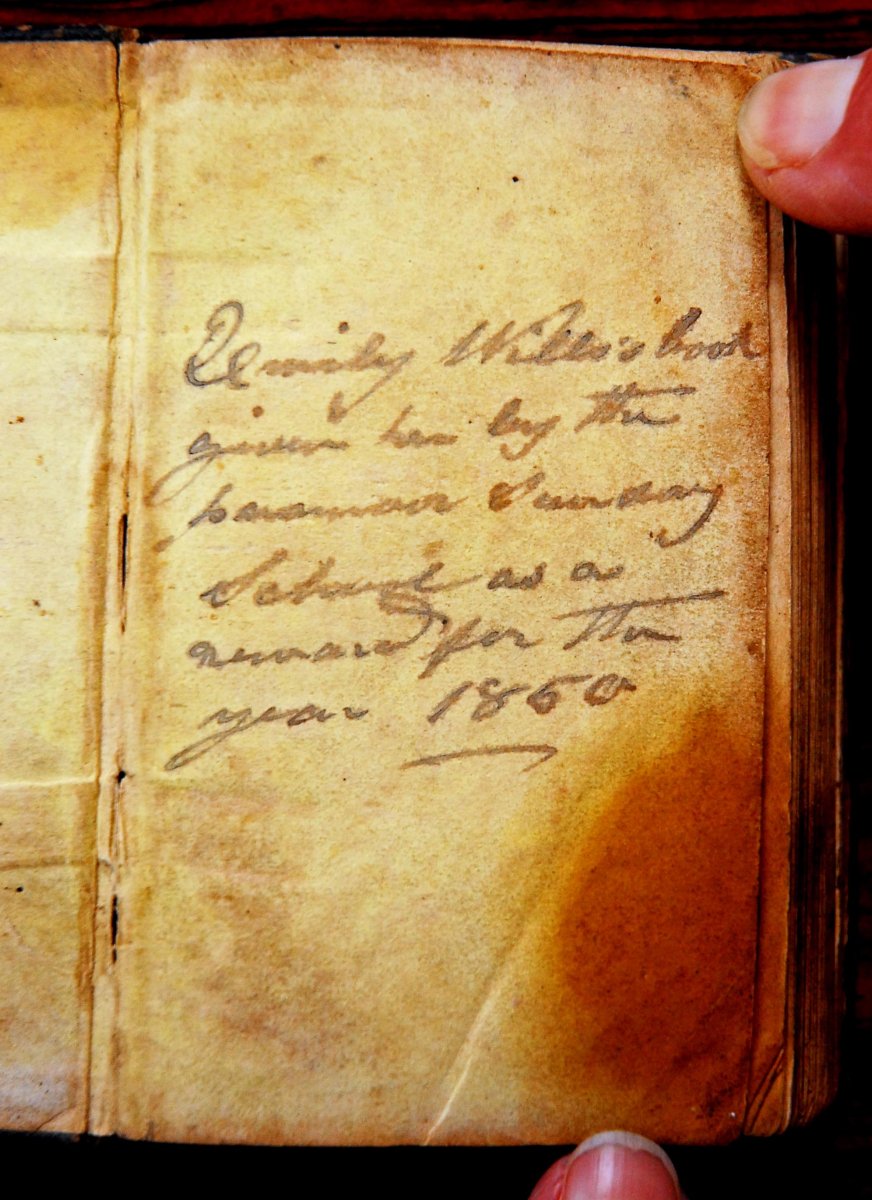 Emily Wills's book
given her by the
paramoor Sunday
School as a
reward for the
year 1860